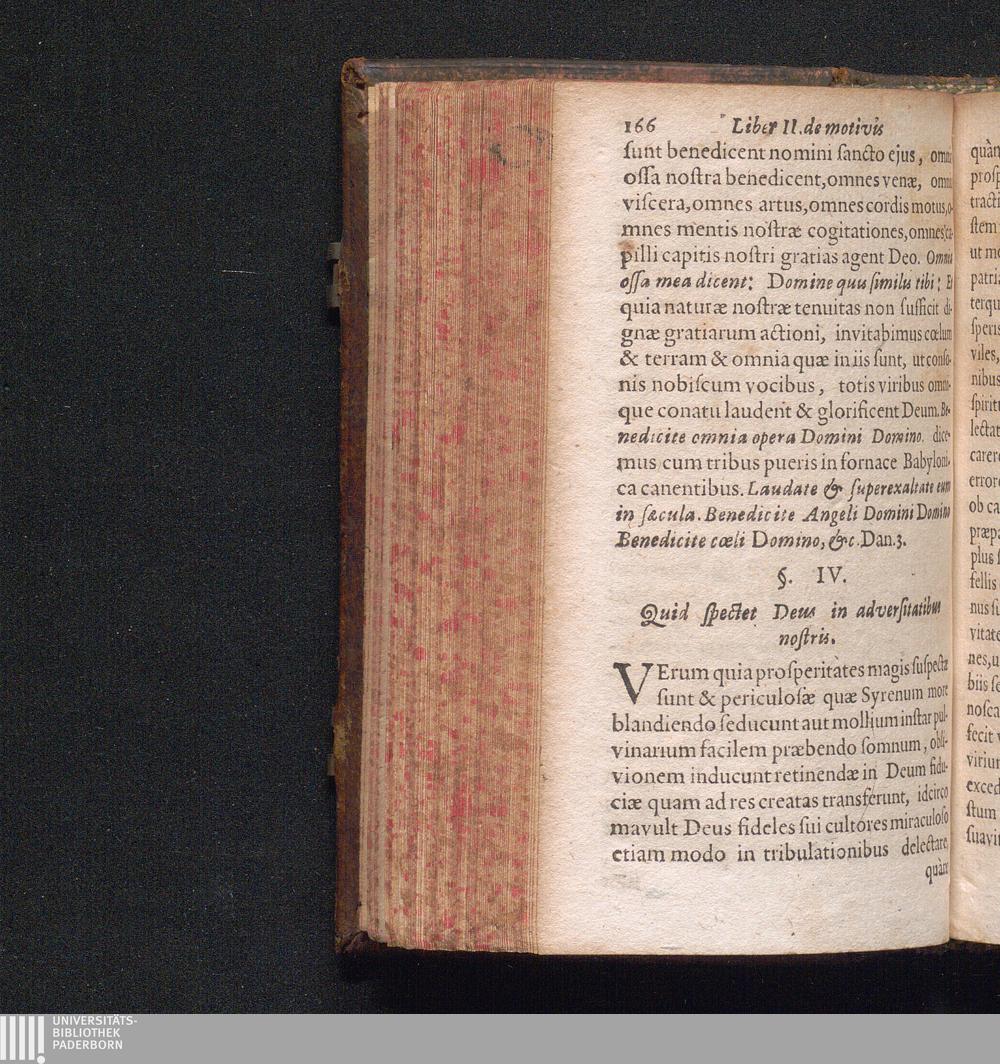 166 Liber II. de motivis
ſunt benedicent nomini ſancto ejus, omnia
oſſa noſtra benedicent, omnes venæ, omnia
viſcera, omnes artus, omnes cordis motus, o-
mnes mentis noſtræ cogitationes, omnes ca-
pilli capitis noſtri gratias agent Deo. Omnia
oſſa mea dicent: Domine quis ſimilis tibi: Et
quia naturæ noſtræ tenuitas non ſufficit di-
gnæ gratiarum actioni, invitabimus cœlum
& terram & omnia quæ in iis ſunt, ut conſo-
nis nobiſcum vocibus, totis viribus omni-
que conatu laudent & glorificent Deum. Be-
nedicite omnia opera Domini Domino. dice-
mus cum tribus pueris in fornace Babyloni-
ca canentibus. Laudate & ſuperexaltate eum
in ſæcula. Benedicite Angeli Domini Domino
Benedicite cœli Domino, &c. Dan. 3.
§. IV.
Quid ſpectet Deus in adverſitatibus
noſtris.
VErum quia proſperitates magis ſuſpectæ
ſunt & periculoſæ quæ Syrenum more
blandiendo ſeducunt aut mollium inſtar pul-
vinarium facilem præbendo ſomnum, obli-
vionem inducunt retinendæ in Deum fidu-
ciæ quam ad res creatas transférunt, idcirco
mavult Deus fideles ſui cultores miraculoſo
etiam modo in tribulationibus delectare,
quàm
quàm
proſp
tracti
ſtem
ut mo
patria
terqu
ſperis
viles,
nibus
ſpiritu
lectat
carere
errore
ob ca
præpa
plus ſ
fellis
nus ſu
vitate
nes, u
biis ſe
noſca
fecit v
viriun
exced
ſtum
ſuavit
UNIVERSITÄTS-
BIBLIOTHEK
PADERBORN